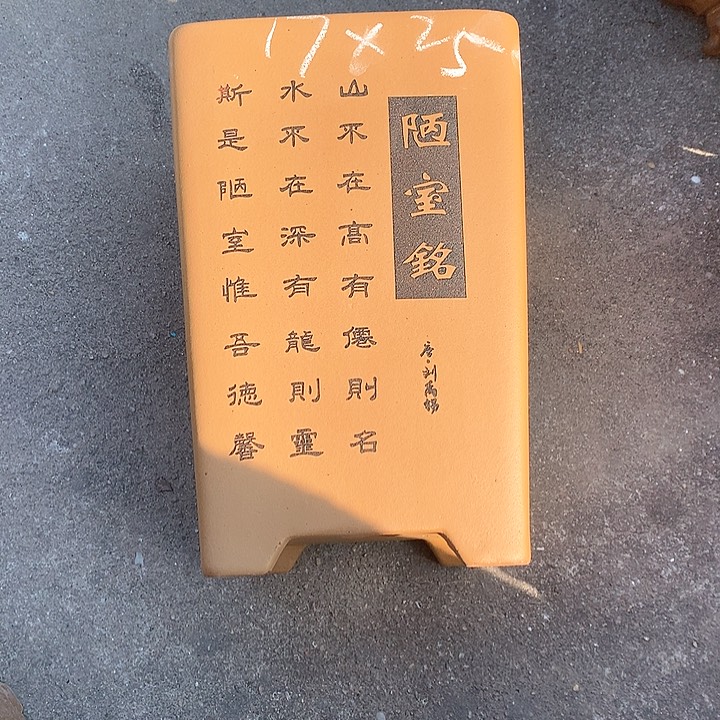 17×25
陋室銘
唐·刘禹锡
山不在高有僊則名
水不在深有龍則靈
斯是陋室惟吾德馨